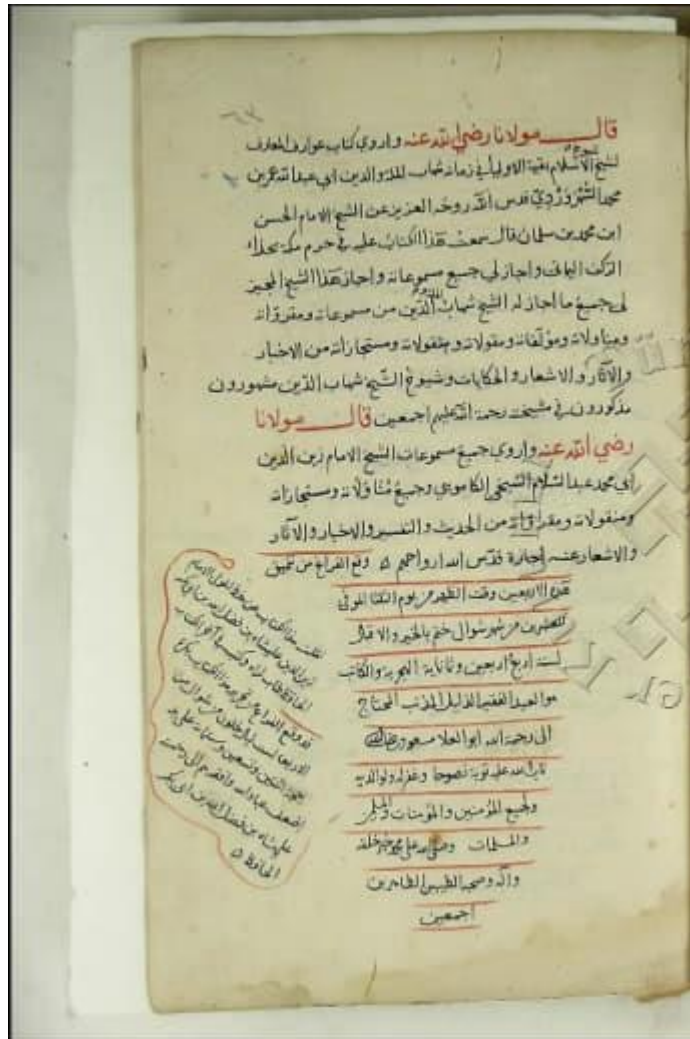 قال مولانا رضي الله عنه واروي كتاب عوارف المعارف
لشيخ الاسلام بقية الاوليا في زمانه شهاب الملة والدين ابي عبد الله عمر بن
محمد السهروردي قدس الله روحه العزيز عن الشيخ الامام الحسن
ابن محمد بن سلمان قال سمعت هذا الكتاب عليه في حرم مكة بحذاء
الركن اليماني واجاز لي جميع مسموعاته واجاز هذا الشيخ المجيز
لي جميع ما اجاز له الشيخ شهاب الدين من مسموعاته ومقروآته
ومناولاته ومؤلفاته ومقولاته ومنقولاته ومستجازاته من الاخبار
والآثار والاشعار والحكايات وشيوخ الشيخ شهاب الدين مشهورون
مذكورون في مشيخته رحمة الله عليهم اجمعين قال مولانا
رضي الله عنه واروي جميع مسموعات الشيخ الامام زين الدين
ابي محمد عبد السلام الشيخي وجميع مناولاته ومستجازاته
ومنقولاته ومقروآته من الحديث والتفسير والاخبار والآثار
والاشعار عنه اجازة قدس الله ارواحهم وقع الفراغ من تنميق
هذه الاربعين وقت الظهر من يوم الثلثا الموفى
للعشرين من شهر شوال ختم بالخير والاقبال
لسنة اربع اربعين وثمانماية الهجرية والكاتب
هو العبد الفقير الذليل المذنب المحتاج
الى رحمة الله ابو العلا مسعود
تاب الله عليه توبة نصوحا وغفر له ولوالديه
ولجميع المؤمنين والمؤمنات والمسلمين
والمسلمات وصلى الله على محمد خير خلقه
وآله وصحبه الطيبين الطاهرين
اجمعين
نقلت هذا الكتاب من خط المولى الامام
زين الدين عليشاه بن فضل الله بن ابي بكر
الحافظ طاب ثراه وكتب آخر الكتاب
قد وقع الفراغ من تحرير هذا الكتاب
الاربعا لست ليال خلون من شوال من
شهور اثنين وتسعين وستمائة على يد
اضعف عباد الله وافقرهم الى رحمته
عليشاه بن فضل الله بن ابي بكر
الحافظ